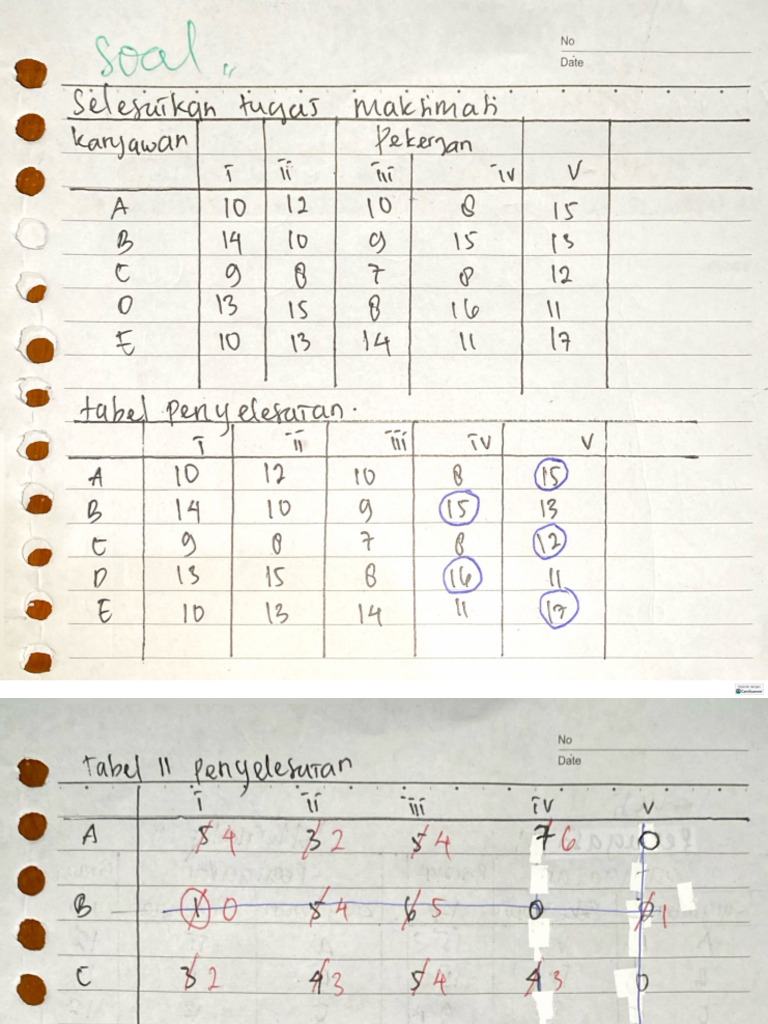 soal "
No
Date
selesaikan tugas maksimasi
karyawan Pekerjaan
i ii iii iv V
A 10 12 10 8 15
B 14 10 9 15 13
C 9 8 7 8 12
D 13 15 8 16 11
E 10 13 14 11 17
tabel penyelesaian.
i ii iii iv V
A 10 12 10 8 15
B 14 10 9 15 13
C 9 8 7 8 12
D 13 15 8 16 11
E 10 13 14 11 17
No
Date
tabel II penyelesaian
i ii iii iv v
A 5 4 3 2 5 4 7 6 0
B 1 0 5 4 6 5 0 1
C 3 2 4 3 5 4 4 3 0